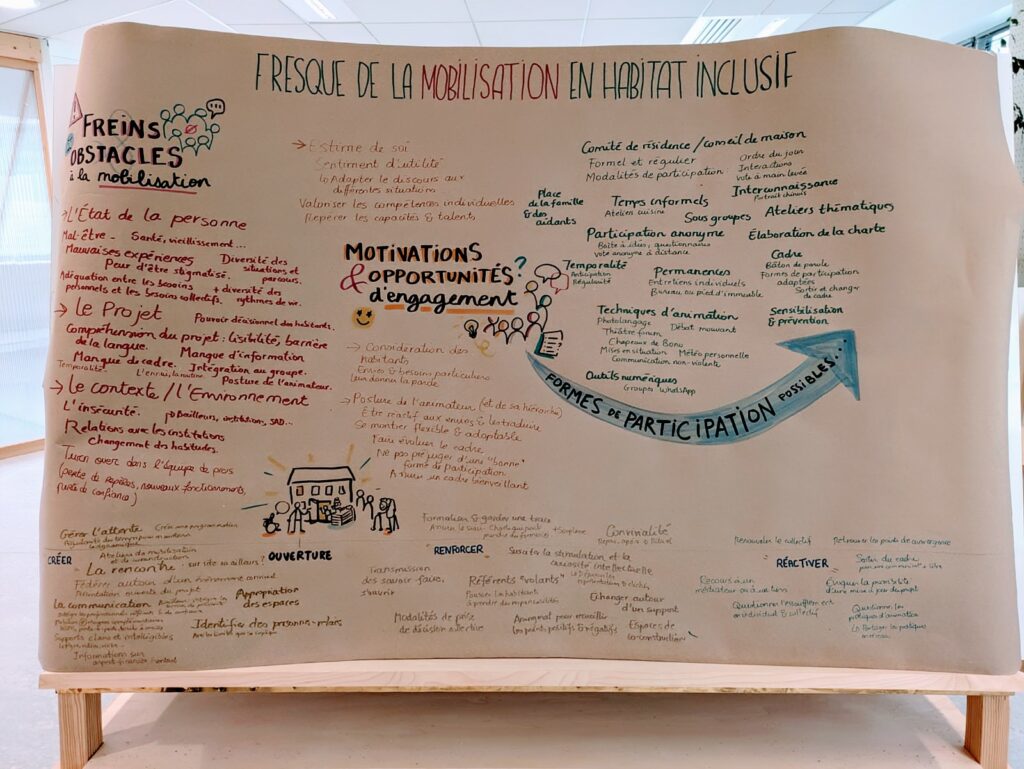 FRESQUE DE LA MOBILISATION EN HABITAT INCLUSIF
FREINS
OBSTACLES
à la mobilisation
→ L'État de la personne
Mal-être - Santé, vieillissement...
Mauvaises expériences
Peur d'être stigmatisé.
Diversité des
situations et
parcours.
Adéquation entre les besoins
personnels et les besoins collectifs.
+ diversité des
rythmes de vie.
→ le Projet
Pouvoir décisionnel des habitants.
Compréhension du projet: lisibilité, barrière
de la langue.
Manque d'information
Manque de cadre.
Intégration au groupe.
Temporalité.
L'ennui, la routine
Posture de l'animateur.
→ le contexte / l'Environnement
L'insécurité.
Bailleurs, institutions, SAD...
Relations avec les institutions
Changement des habitudes.
Turn over dans l'équipe de pros
(perte de repères, nouveaux fonctionnements,
perte de confiance)
→ Estime de soi
Sentiment d'utilité
↳ Adapter le discours aux
différentes situations
Valoriser les compétences individuelles
Repérer les capacités & talents
MOTIVATIONS
& OPPORTUNITÉS
d'engagement
?
→ Considération des
habitants
Envies & besoins particuliers
Leur donner la parole
→ Posture de l'animateur (et de sa hiérarchie)
Être réactif aux envies & les traduire
Se montrer flexible & adaptable
Faire évoluer le cadre
Ne pas préjuger d'une "bonne"
forme de participation
Assurer un cadre bienveillant
Place
de la famille
& des
aidants
Comité de résidence / conseil de maison
Formel et régulier
Modalités de participation:
Ordre du jour
Interactions
Vote à main levée
Interconnaissance
Portrait chinois
Temps informels
Ateliers cuisine
Sous groupes
Ateliers thématiques
Participation anonyme
Boîte à idées, questionnaires
Vote anonyme à distance
Élaboration de la charte
Temporalité
Anticipation
Régularité
Permanences
Entretiens individuels
Bureau au pied d'immeuble
Cadre
Bâton de parole
Formes de participation
adaptées
Sortir et changer
de cadre
Techniques d'animation
Photolangage
Théâtre forum
Débat mouvant
Chapeaux de Bono
Mises en situation
Météo personnelle
Communication non-violente
Sensibilisation
& prévention
Outils numériques
Groupes WhatsApp
FORMES DE PARTICIPATION POSSIBLES...
CRÉER
Gérer l'attente
Ateliers de mobilisation
La rencontre: sur site ou ailleurs?
Fédérer autour d'un évènement annuel
Présentation ouverte du projet
La communication
Supports clairs et intelligibles
Informations sur
OUVERTURE
Appropriation
des espaces
Identifier des personnes-relais
RENFORCER
Formaliser & garder une trace
Convivialité
Susciter la stimulation et la
curiosité intellectuelle
Transmission
des savoir faire,
s'ouvrir
Référents "volants"
Pousser les habitants
à prendre des responsabilités
Échanger autour
d'un support
Modalités de prise
de décision collective
les points positifs & négatifs
Espaces de
co-construction
RÉACTIVER
Renouveler le collectif
Retrouver les points de convergence
Sortir du cadre
Recours à un
médiateur ou à un tiers
Évoquer la possibilité
d'une mise à jour du projet
Questionner l'essoufflement
en individuel & collectif
Questionner les
pratiques d'animation
↳ Partager les pratiques